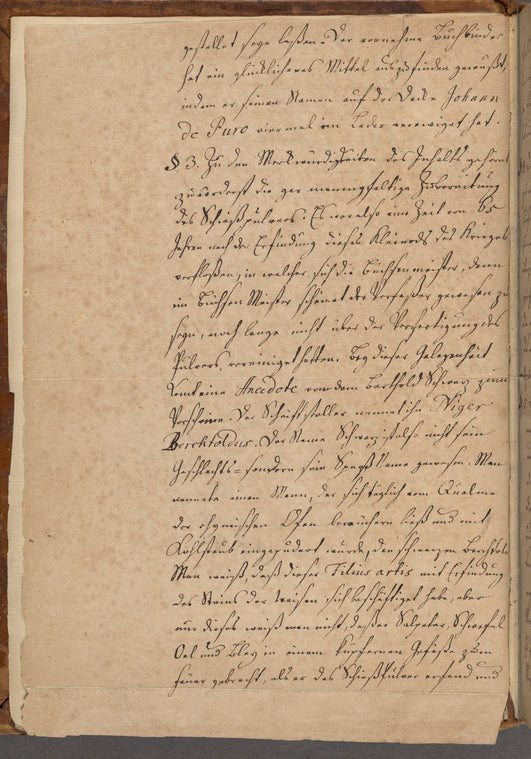 gestellet seyn laßen. Der vornehme Buchbinder
hat ein glücklicheres Mittel auszufinden gewußt,
indem er seinen Namen auf der Decke Johann
de Puro viermal im Leder verewiget hat.
§. 3. Zu den Merkwürdigkeiten des Inhalts gehört
zuvorderst die gar mannigfaltige Zubereitung
des Schießpulvers. Es war also eine Zeit von 65
Jahren nach der Erfindung dieses Kleinods des Krieges
verfloßen, in welcher sich die Büchsenmeister, denn
ein Büchsen Meister scheinet der Verfaßer gewesen zu
seyn, noch lange nicht über der Verfertigung des
Pulvers vereiniget hatten. Bey dieser Gelegenheit
komt eine Anecdote von dem Berthold Schwarz zum
Vorschein. Der Schriftsteller nennet ihn Niger
Berchtoldus. Der Name Schwarz ist also nicht sein
Geschlechts- sondern sein Name gewesen. Man
nennete einen Mann, der sich täglich vom Qualme
der chymischen Ofen beräuchern ließ und mit
Kohlstaub eingepudert wurde, den schwarzen Berchtold
Man weiß, daß dieser Filius artis mit Erfindung
des Steins der Weisen sich beschäftiget habe, aber
nur dieses weiß man nicht, daß er Salpeter, Schwefel
Oel und Bley in einem küpfernen Gefäße zum
Feuer gebracht, als er das Schießpulver erfand und